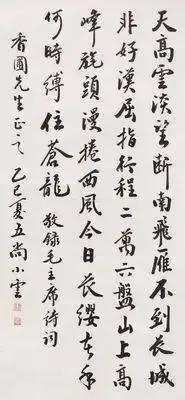 天高雲淡望斷南飛雁不到長城
非好漢屈指行程二萬六盤山上高
峰旄頭漫捲西風今日長纓在手
何時縛住蒼龍 敬錄毛主席詩詞
香圃先生正之 乙巳夏五尚小雲